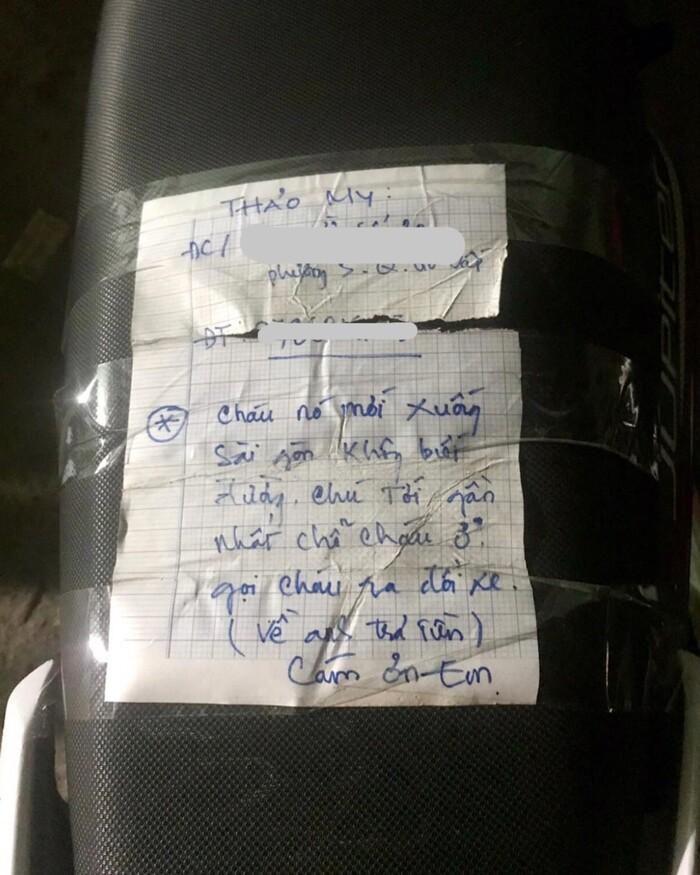 THẢO MY:
ĐC/
phường 5. Q. Gò Vấp
ĐT:
* Cháu nó mới xuống
Sài gòn không biết
đường. chú tới gần
nhất chỗ cháu ở.
gọi cháu ra đổi xe.
(Về anh trả tiền)
Cám ơn-Em
Jupiter